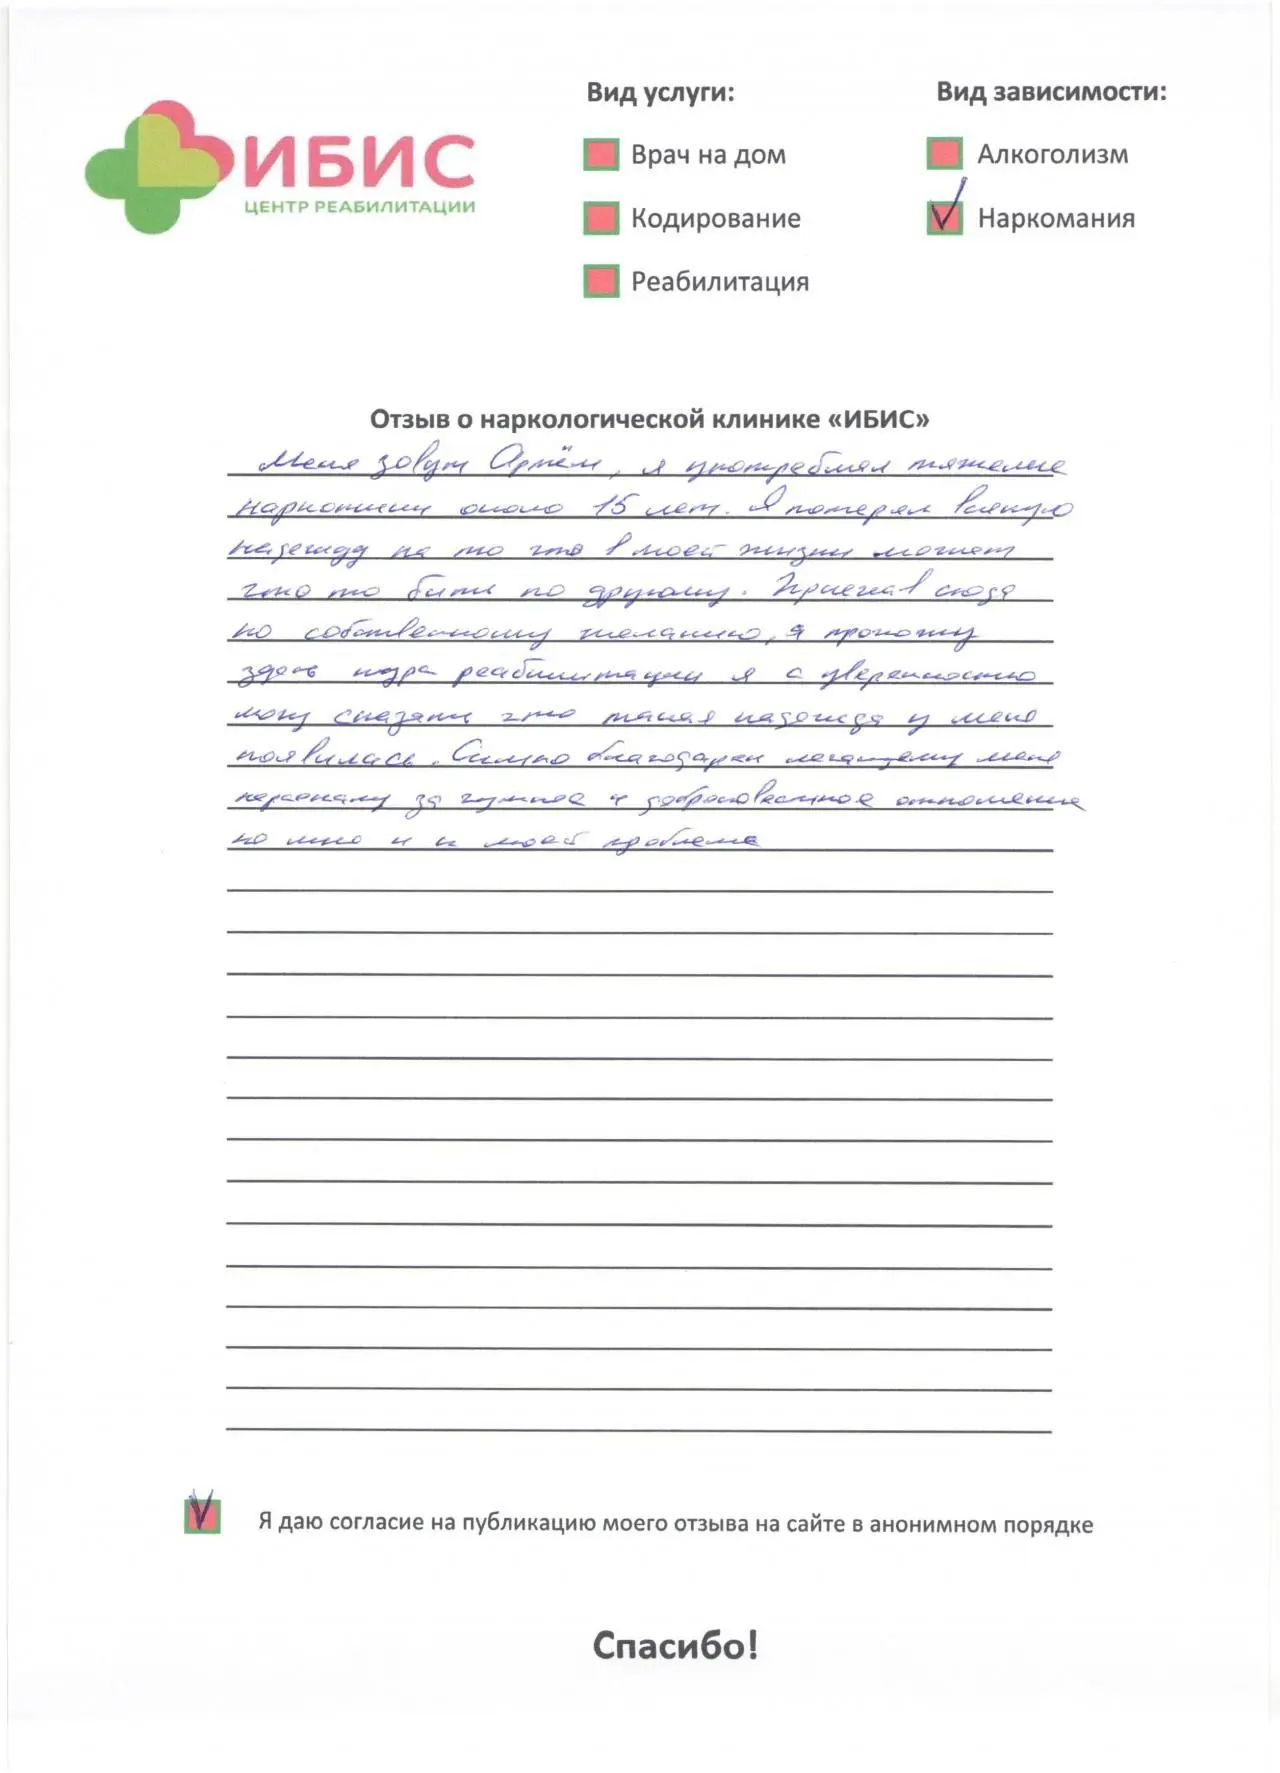 Вид услуги:
Вид зависимости:
ИБИС
ЦЕНТР РЕАБИЛИТАЦИИ
Врач на дом
Алкоголизм
Кодирование
Наркомания
Реабилитация
Отзыв о наркологической клинике «ИБИС»
Меня зовут Артём, я употреблял тяжелые
наркотики около 15 лет. Я потерял всякую
надежду на то что в моей жизни может
что то быть по другому. Приехав сюда
по собственному желанию, я прохожу
здесь курс реабилитации я с уверенностью
могу сказать что такая надежда у меня
появилась. Сильно благодарен лечащему меня
персоналу за чуткое и добросовестное отношение
ко мне и к моей проблеме
Я даю согласие на публикацию моего отзыва на сайте в анонимном порядке
Спасибо!